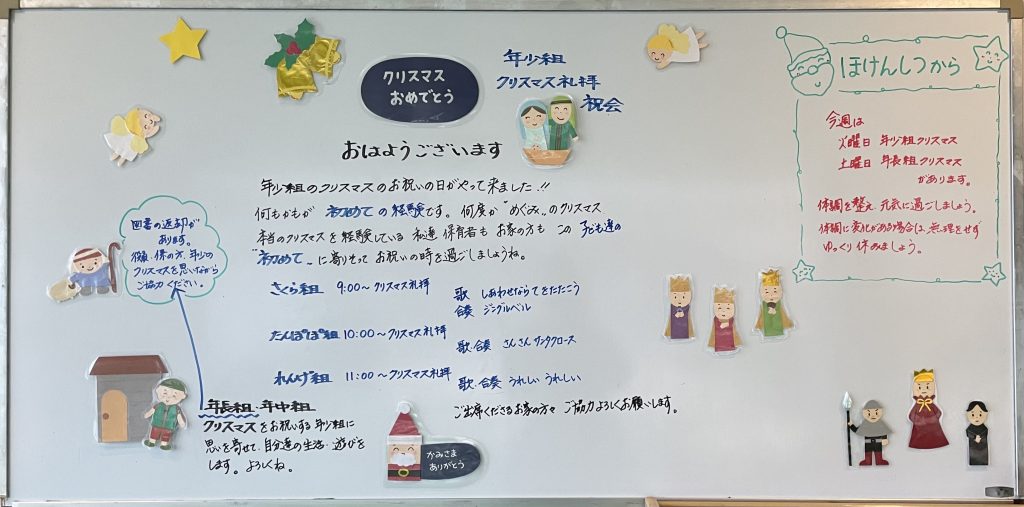 クリスマス
おめでとう
年少組
クリスマス礼拝
祝会
おはようございます
年少組のクリスマスのお祝いの日がやって来ました!!
何もかもが 初めて の経験です。何度か“めぐみ„のクリスマス
本当のクリスマスを経験している 私達 保育者も お家の方も この 子ども達の
“初めて„に寄りそって お祝いの時を過ごしましょうね。
さくら組 9:00~クリスマス礼拝
歌 しあわせなら てをたたこう
合奏 ジングルベル
たんぽぽ組 10:00~クリスマス礼拝
歌・合奏 さんさん サンタクロース
れんげ組 11:00~クリスマス礼拝
歌・合奏 うれしい うれしい
ご出席くださるお家の方々 ご協力よろしくお願いします。
図書の返却が
あります。
係の方、年少の
クリスマスを思いながら
ご協力ください。
年長組・年中組
クリスマスをお祝いする年少組に
思いを寄せて、自分達の生活・遊びを
します。よろしくね。
かみさま
ありがとう
ほけんしつから
今週は
火曜日 年少組クリスマス
土曜日 年長組クリスマス
があります。
体調を整え、元気に過ごしましょう。
体調に変化がある場合は、無理をせず
ゆっくり休みましょう。